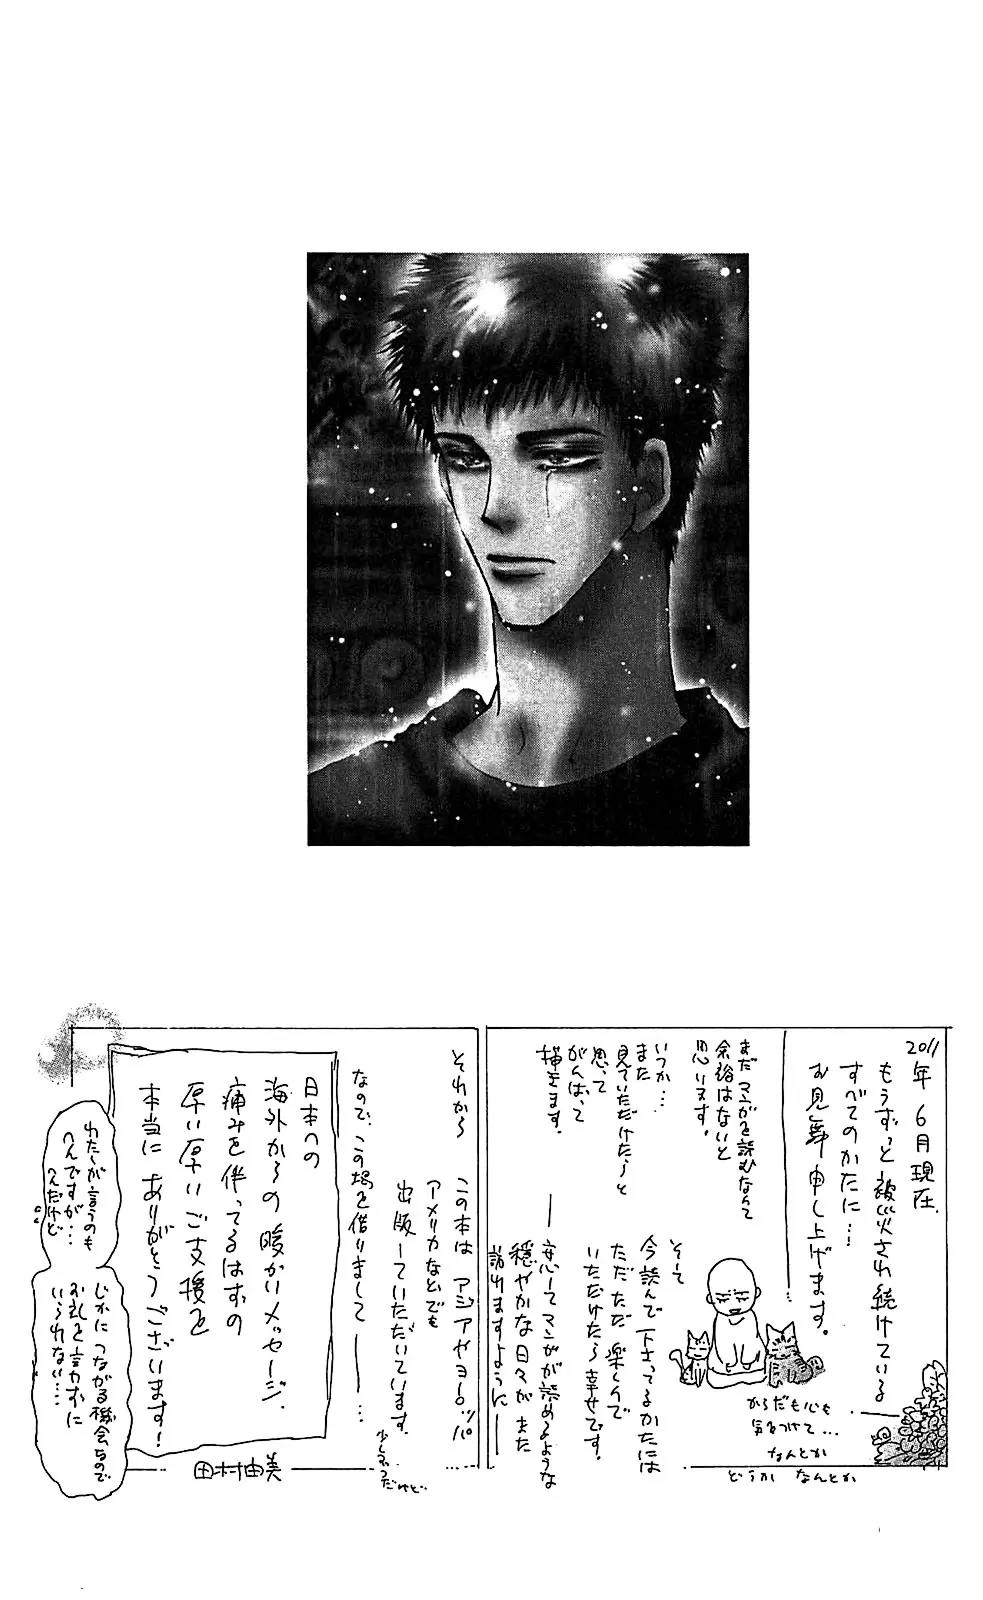 2011年 6月現在
もうずっと被災され続けている
すべてのかたに…
お見舞申し上げます。
…
からだも心も
気をつけて…
なんとか
どうか なんとか
まだマンガを読むなんて
余裕はないと
思います。
いつか…
また
見ていただけたらと
思って
がんばって
描きます。
そして
今読んで下さってるかたには
ただただ 楽しんで
いただけたら幸せです。
──安心してマンガが読めるような
穏やかな日々が また
訪れますように──
それから
この本は アジアやヨーロッパ
アメリカなどでも
出版していただいています。
少しずつだけど
なので、この場を借りまして──…
日本への
海外からの 暖かいメッセージ、
痛みを伴ってるはずの
厚い厚いご支援を
本当に ありがとうございます!
わたしが言うのも
へんですが…
へんだけど
じかに つながる機会なので
お礼を言わずに
いられない…
田村由美